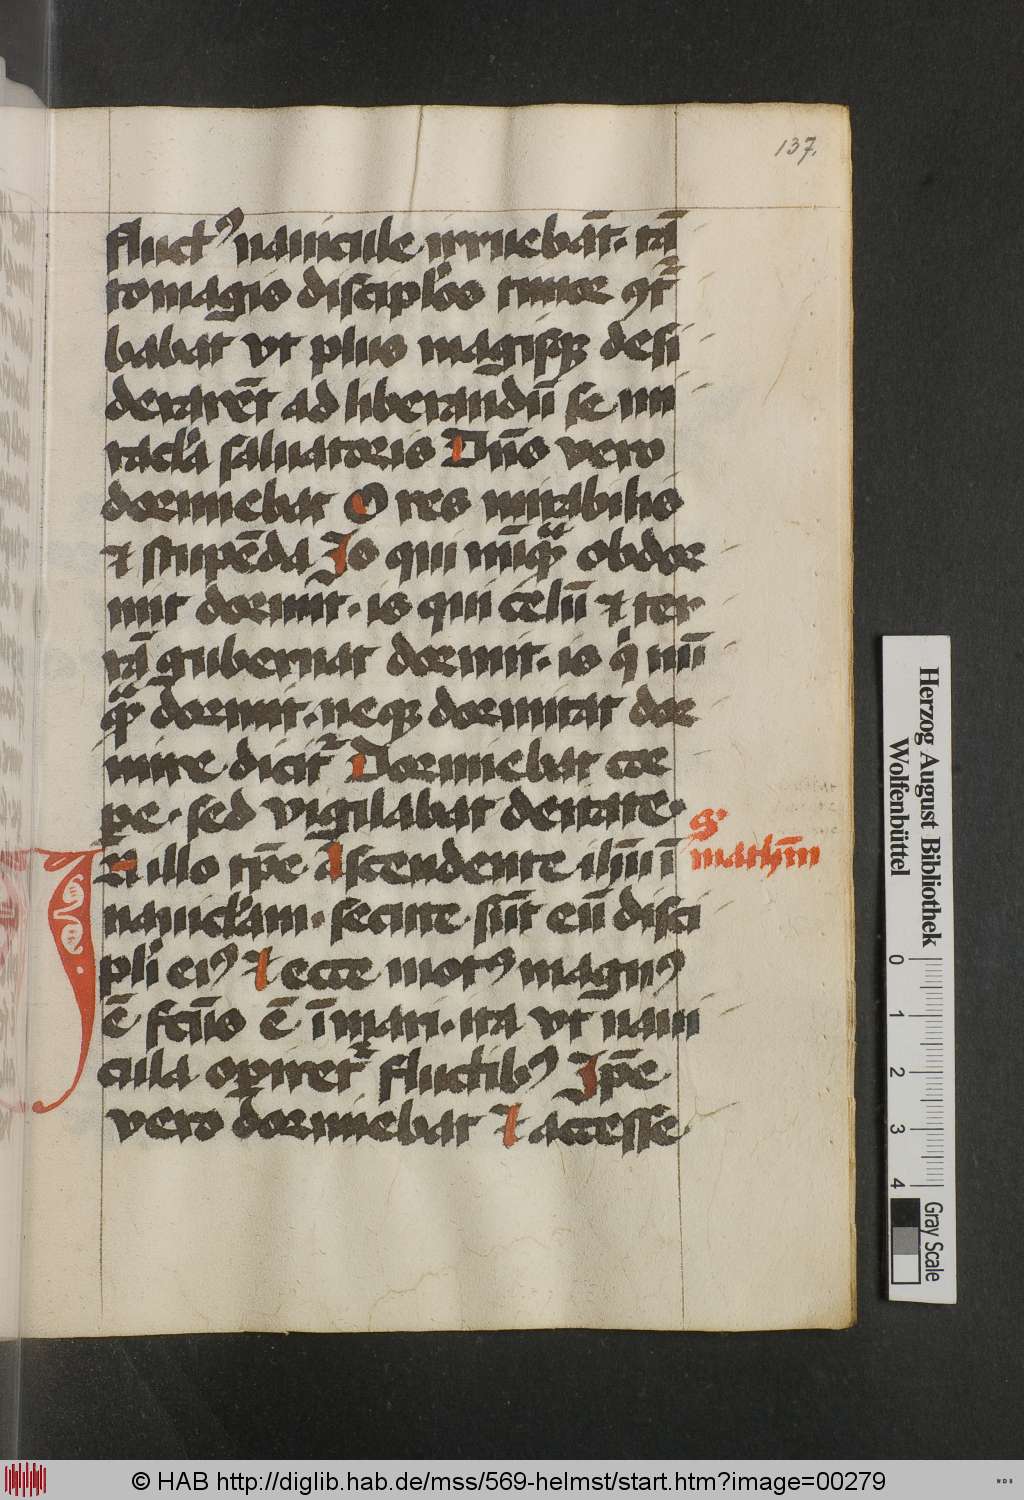 137.
fluctꝰ nauicule irruebāt. tā
to magis discipl'os timor ꝯt᷑
babat vt plus magisqꝫ desi
derarēt ad liberandū se mi
racl'a saluatoris Dn̄s vero
dormiebat O res mirabilis
⁊ stupēda Is qui nūqᷓ obdor
mit dormit. is qui celū ⁊ ter
rā gubernat dormit. is qͥ nū
qᷓ dormit. neqꝫ dormitat dor
mire dicit᷑ Dormiebat cor
pe. sed vigilabat deitate.
S'
IN illo tp̄e Ascendente ih̄u ī
math̄m
nauicl'am. secute sūt eū disci
pl'i eiꝰ ⁊ ecce motꝰ magnꝰ
ē fc̄us ē ī mari. ita vt naui
cula operiret᷑ fluctibꝰ Ip̄e
vero dormiebat ⁊ accesse
Herzog August Bibliothek
Wolfenbüttel
0 1 2 3 4
Gray Scale
© HAB http://diglib.hab.de/mss/569-helmst/start.htm?image=00279